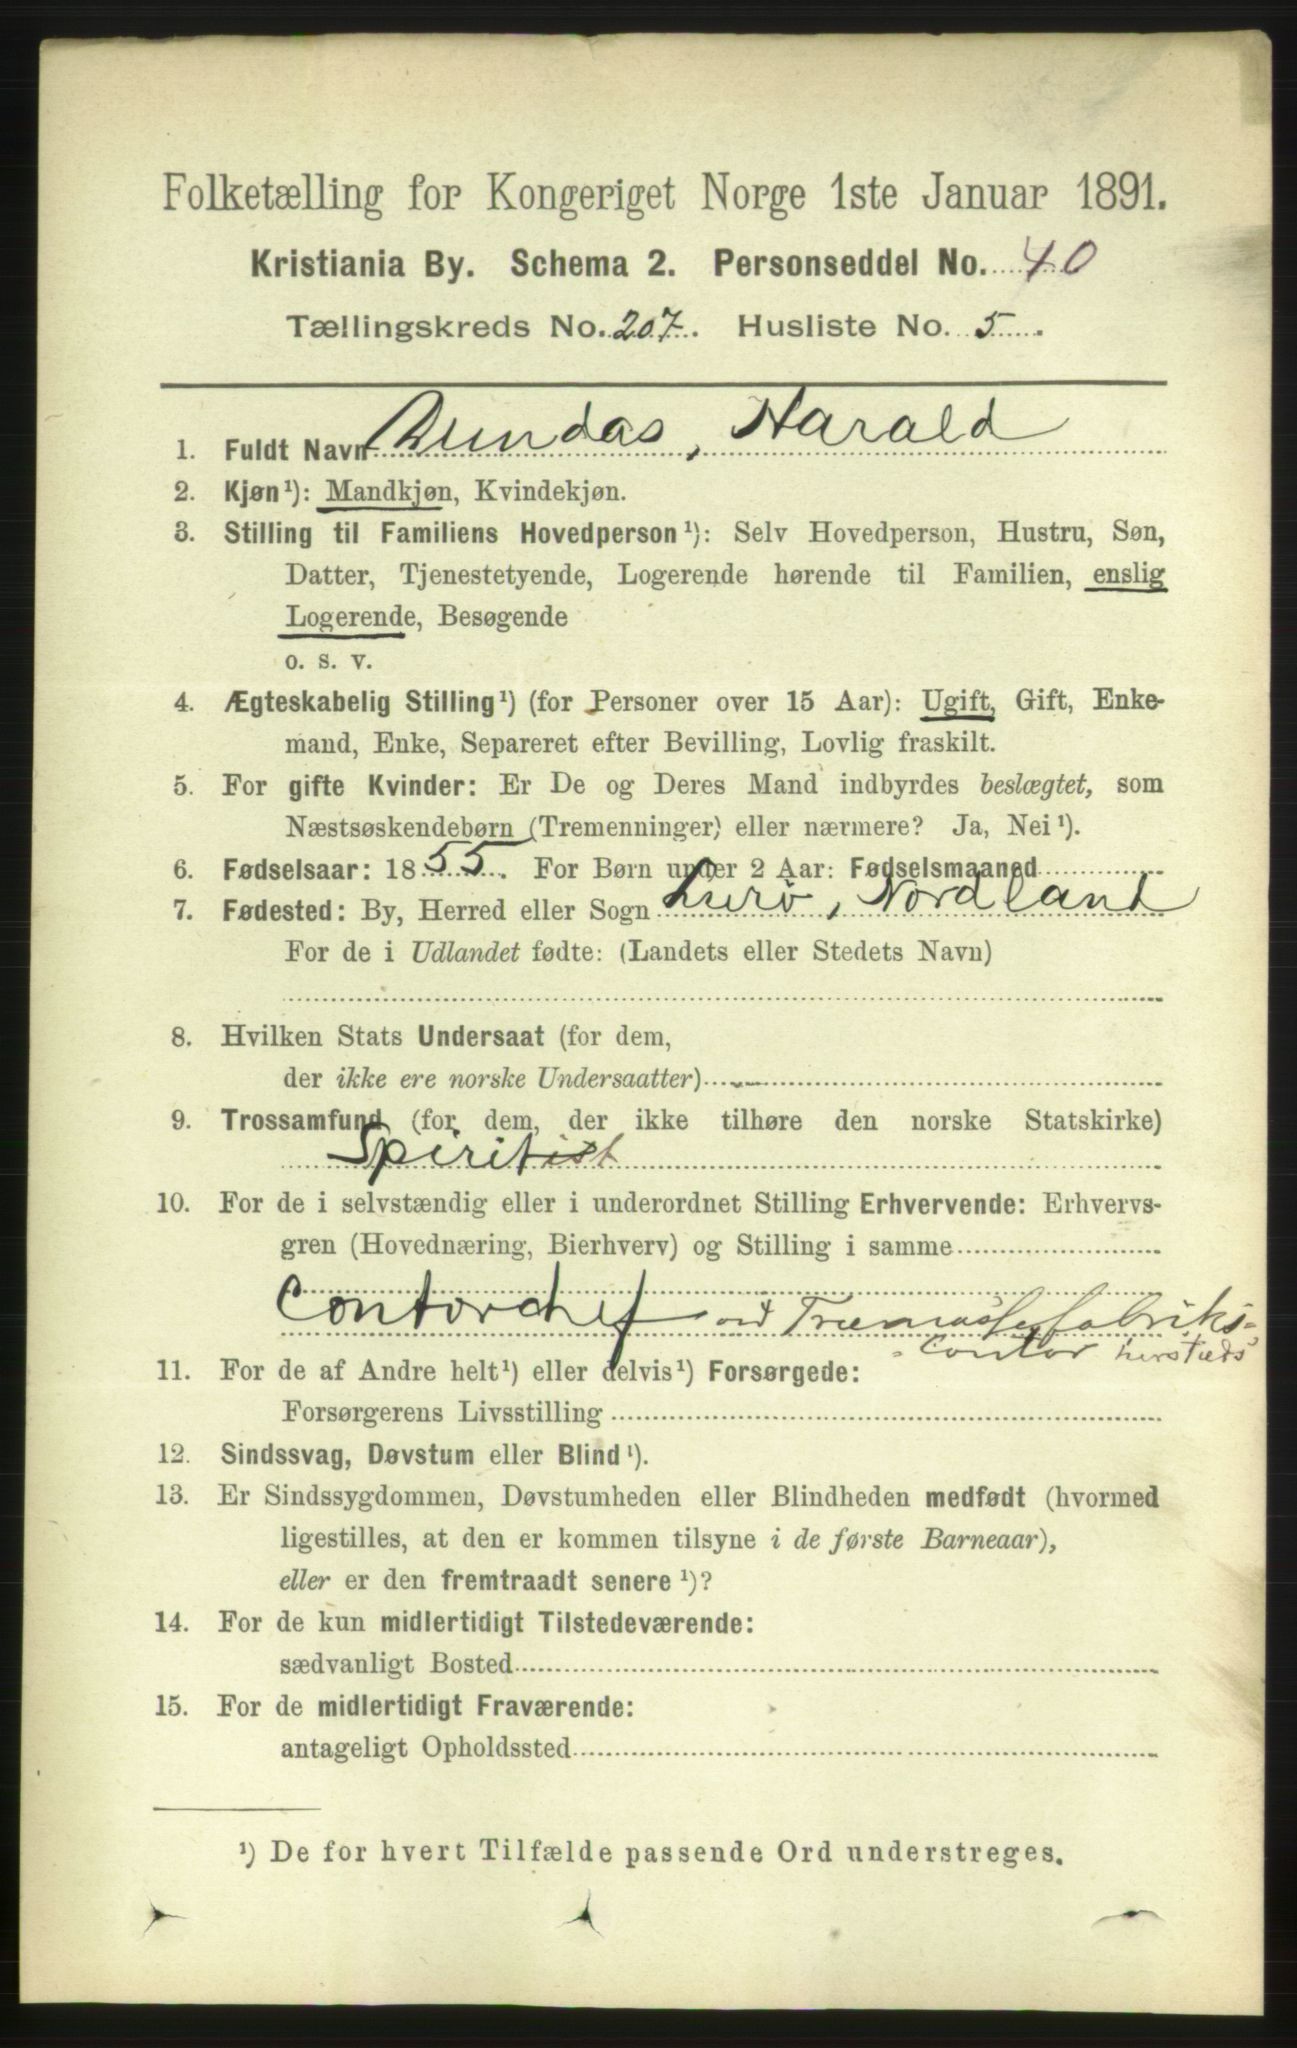 Folketælling for Kongeriget Norge 1ste Januar 1891.
Kristiania By. Schema 2. Personseddel No. 40
Tællingskreds No. 207. Husliste No. 5.
1. Fuldt Navn Dundas, Harald
2. Kjøn¹): Mandkjøn, Kvindekjøn.
3. Stilling til Familiens Hovedperson¹): Selv Hovedperson, Hustru, Søn,
Datter, Tjenestetyende, Logerende hørende til Familien, enslig
Logerende, Besøgende
o. s. v.
4. Ægteskabelig Stilling¹) (for Personer over 15 Aar): Ugift, Gift, Enke-
mand, Enke, Separeret efter Bevilling, Lovlig fraskilt.
5. For gifte Kvinder: Er De og Deres Mand indbyrdes beslægtet, som
Næstsøskendebørn (Tremenninger) eller nærmere? Ja, Nei¹).
6. Fødselsaar: 1855. For Børn under 2 Aar: Fødselsmaaned
7. Fødested: By, Herred eller Sogn Lurø, Nordland
For de i Udlandet fødte: (Landets eller Stedets Navn)
8. Hvilken Stats Undersaat (for dem,
der ikke ere norske Undersaatter)
9. Trossamfund (for dem, der ikke tilhøre den norske Statskirke)
Spiritist
10. For de i selvstændig eller i underordnet Stilling Erhvervende: Erhvervs-
gren (Hovednæring, Bierhverv) og Stilling i samme
Contorchef ved Træmassefabriks-
-contor herstæds
11. For de af Andre helt¹) eller delvis¹) Forsørgede:
Forsørgerens Livsstilling
12. Sindssvag, Døvstum eller Blind¹).
13. Er Sindssygdommen, Døvstumheden eller Blindheden medfødt (hvormed
ligestilles, at den er kommen tilsyne i de første Barneaar),
eller er den fremtraadt senere¹)?
14. For de kun midlertidigt Tilstedeværende:
sædvanligt Bosted
15. For de midlertidigt Fraværende:
antageligt Opholdssted
¹) De for hvert Tilfælde passende Ord understreges.